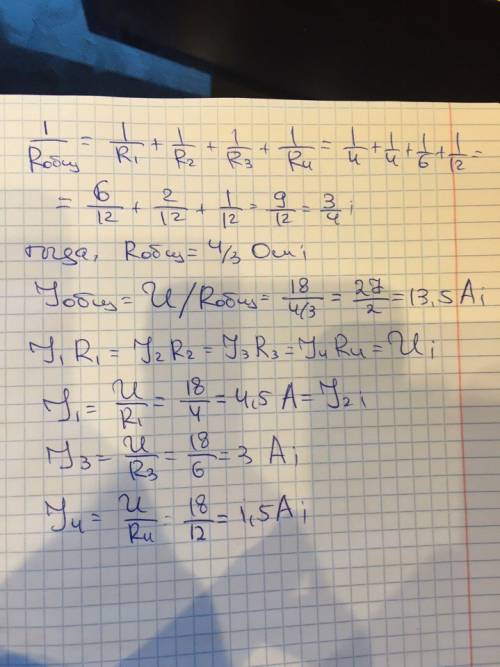 1/Rобщ = 1/R₁ + 1/R₂ + 1/R₃ + 1/R₄ = 1/4 + 1/4 + 1/6 + 1/12 =
= 6/12 + 2/12 + 1/12 = 9/12 = 3/4;
тогда, Rобщ = 4/3 Ом;
Jобщ = U/Rобщ = 18/4/3 = 27/2 = 13,5 A;
J₁R₁ = J₂R₂ = J₃R₃ = J₄R₄ = U;
J₁ = U/R₁ = 18/4 = 4,5 A = J₂;
J₃ = U/R₃ = 18/6 = 3 A;
J₄ = U/R₄ = 18/12 = 1,5 A;